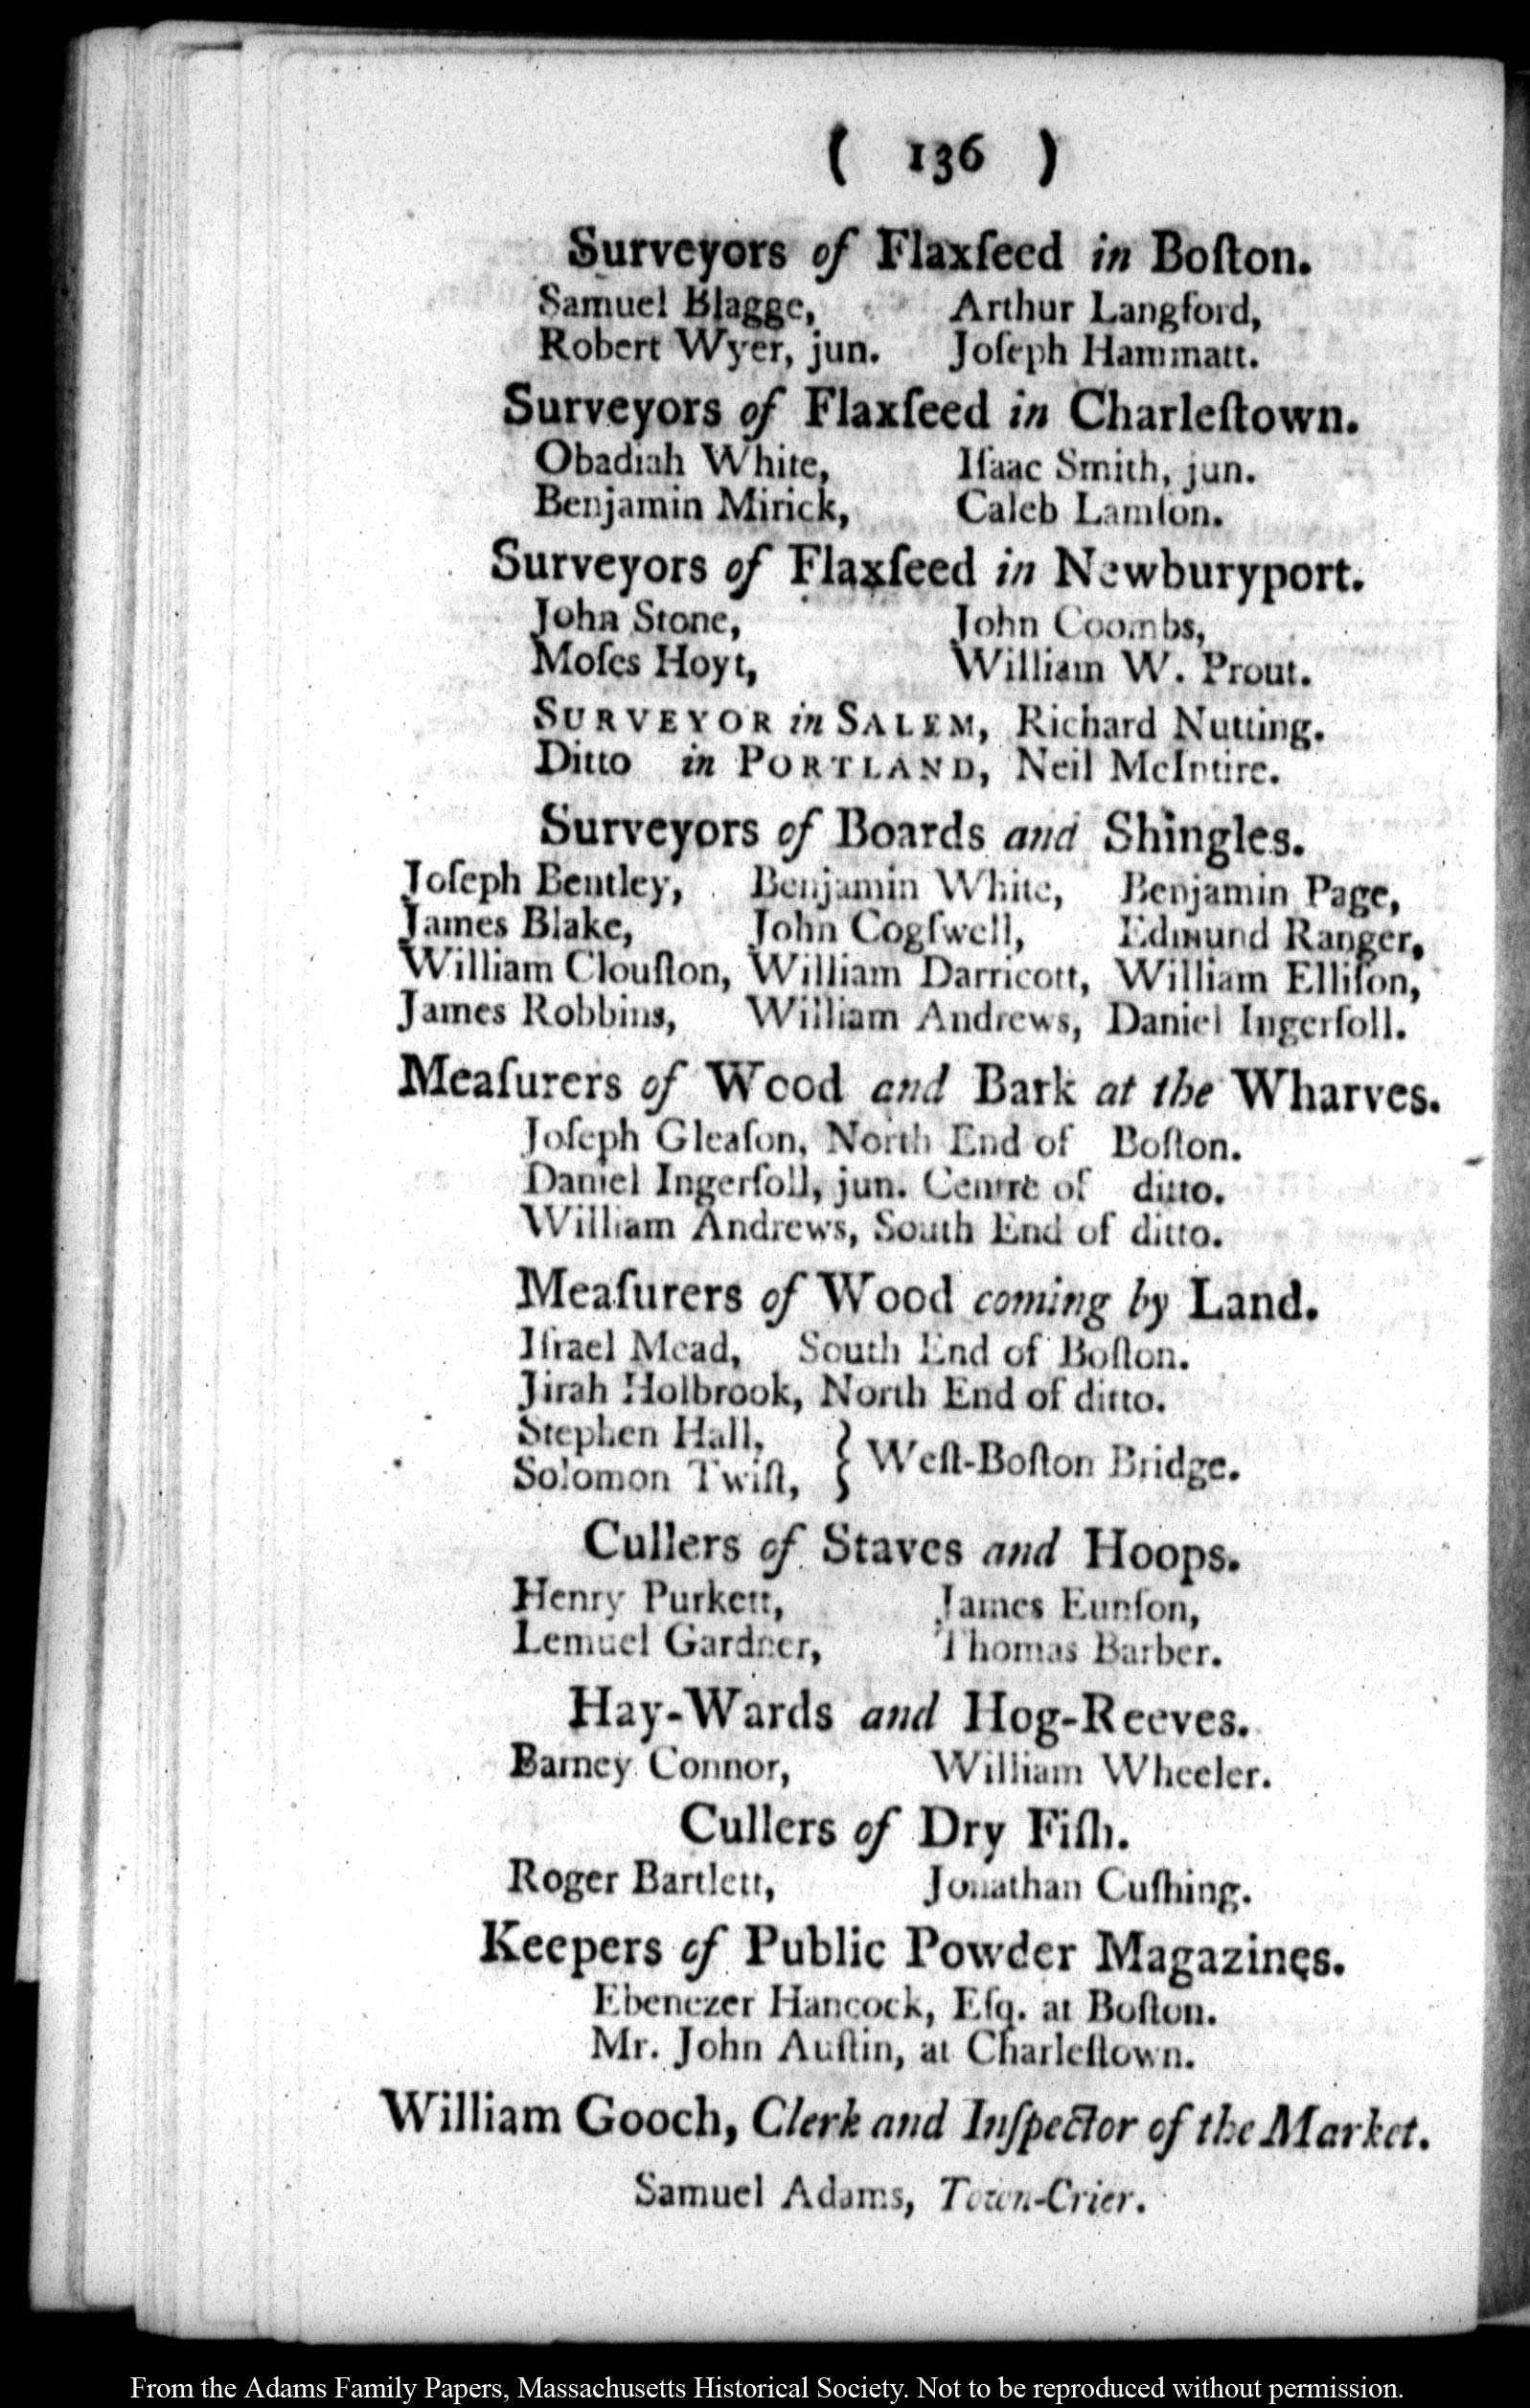 ( 136 )
Surveyors of Flaxſeed in Boſton.
Samuel Blagge, Arthur Langford,
Robert Wyer, jun. Joſeph Hammatt.
Surveyors of Flaxſeed in Charleſtown.
Obadiah White, Iſaac Smith, jun.
Benjamin Mirick, Caleb Lamſon.
Surveyors of Flaxſeed in Newburyport.
John Stone, John Coombs,
Moſes Hoyt, William W. Prout.
SURVEYOR in SALEM, Richard Nutting.
Ditto in PORTLAND, Neil McIntire.
Surveyors of Boards and Shingles.
Joſeph Bentley, Benjamin White, Benjamin Page,
James Blake, John Cogſwell, Edmund Ranger,
William Clouſton, William Darricott, William Elliſon,
James Robbins, William Andrews, Daniel Ingerſoll.
Meaſurers of Wood and Bark at the Wharves.
Joſeph Gleaſon, North End of Boſton.
Daniel Ingerſoll, jun. Centre of ditto.
William Andrews, South End of ditto.
Meaſurers of Wood coming by Land.
Iſrael Mead, South End of Boſton.
Jirah Holbrook, North End of ditto.
Stephen Hall,
Solomon Twiſt, } Weſt-Boſton Bridge.
Cullers of Staves and Hoops.
Henry Purkett, James Eunſon,
Lemuel Gardner, Thomas Barber.
Hay-Wards and Hog-Reeves.
Barney Connor, William Wheeler.
Cullers of Dry Fiſh.
Roger Bartlett, Jonathan Cuſhing.
Keepers of Public Powder Magazines.
Ebenezer Hancock, Eſq. at Boſton.
Mr. John Auſtin, at Charleſtown.
William Gooch, Clerk and Inſpector of the Market.
Samuel Adams, Town-Crier.
From the Adams Family Papers, Massachusetts Historical Society. Not to be reproduced without permission.